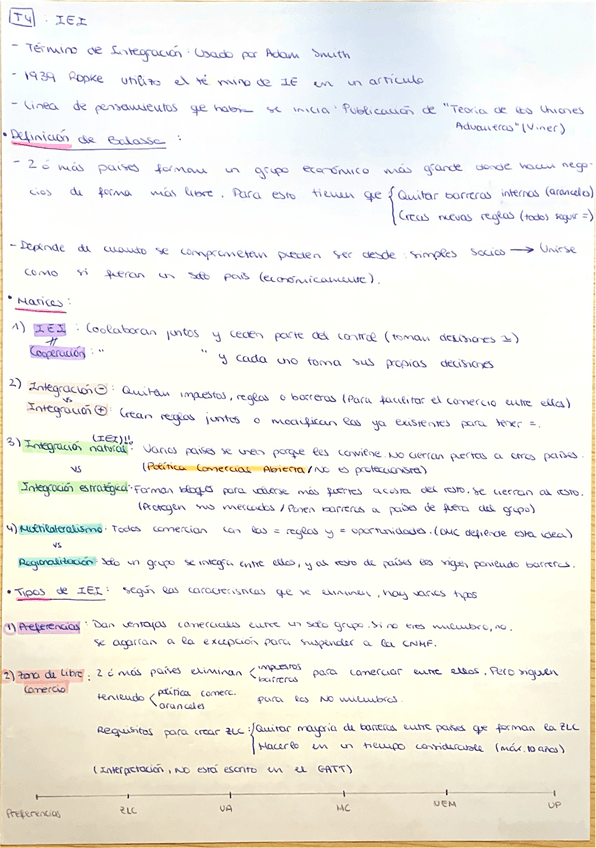 T4 : IEI
- Término de Integración: Usado por Adam Smith
- 1939 Ropke utilizo el té mino de IE en un articulo
- Línea de pensamientos que habra se inicia: Publicación de "Teoria de las Uniones
Aduaneras" (Viner)
• Definición de Balassa :
- 2 ó más países forman un grupo económico más grande donde hacen nego-
cios de forma más libre. Para esto tienen que { Quitar barreras internas (arancels)
Crear nuevas reglas (todos seguir =)
- Depende de cuanto se comprometan pueden ser desde : simples socios → Unirse
como si fueran un solo país (económicamente).
• Matices :
1) IEI : Coolaboran juntos y ceden parte del control (toman decisiones)
Cooperación : " " y cada uno toma sus propias decisiones
2) Integración ⊖ : Quitan impuestos, reglas o barreras (Para facilitar el comercio entre ellos)
vs
Integración ⊕ : Crean reglas juntos o modifican las ya existentes para tener =.
3) Integración natural (IEI)!! : Varios países se unen porque les conviene. No cierran puertas a otros países.
vs (Política Comercial Abierta / No es proteccionista)
Integración estratégica: Forman bloques para volverse más fuertes a costa del resto. Se cierran al resto.
(Protegen sus mercados / Ponen barreras a países de fuera del grupo)
4) Multilateralismo: Todos comercian con las = reglas y = oportunidades. (OMC defiende esta idea)
vs
Regionalización: Solo un grupo se integra entre ellos, y al resto de países les siguen poniendo barreras.
• Tipos de IEI : Según las características que se eliminen, hay varios tipos
1) Preferencias : Dan ventajas comerciales entre un solo grupo. Si no eres miembro, no.
Se agarran a la excepción para suspender a la CNMF.
2) Zona de Libre Comercio : 2 ó más países eliminan < impuestos barreras para comerciar entre ellos. Pero siguen
teniendo < política comerc. aranceles para los No miembros.
Requisitos para crear ZLC : { Quitar mayoría de barreras entre países que forman la ZLC
Hacerlo en un tiempo considerable (máx. 10 años)
(Interpretación, No está escrito en el GATT)
Preferencias ZLC UA MC UEM UP